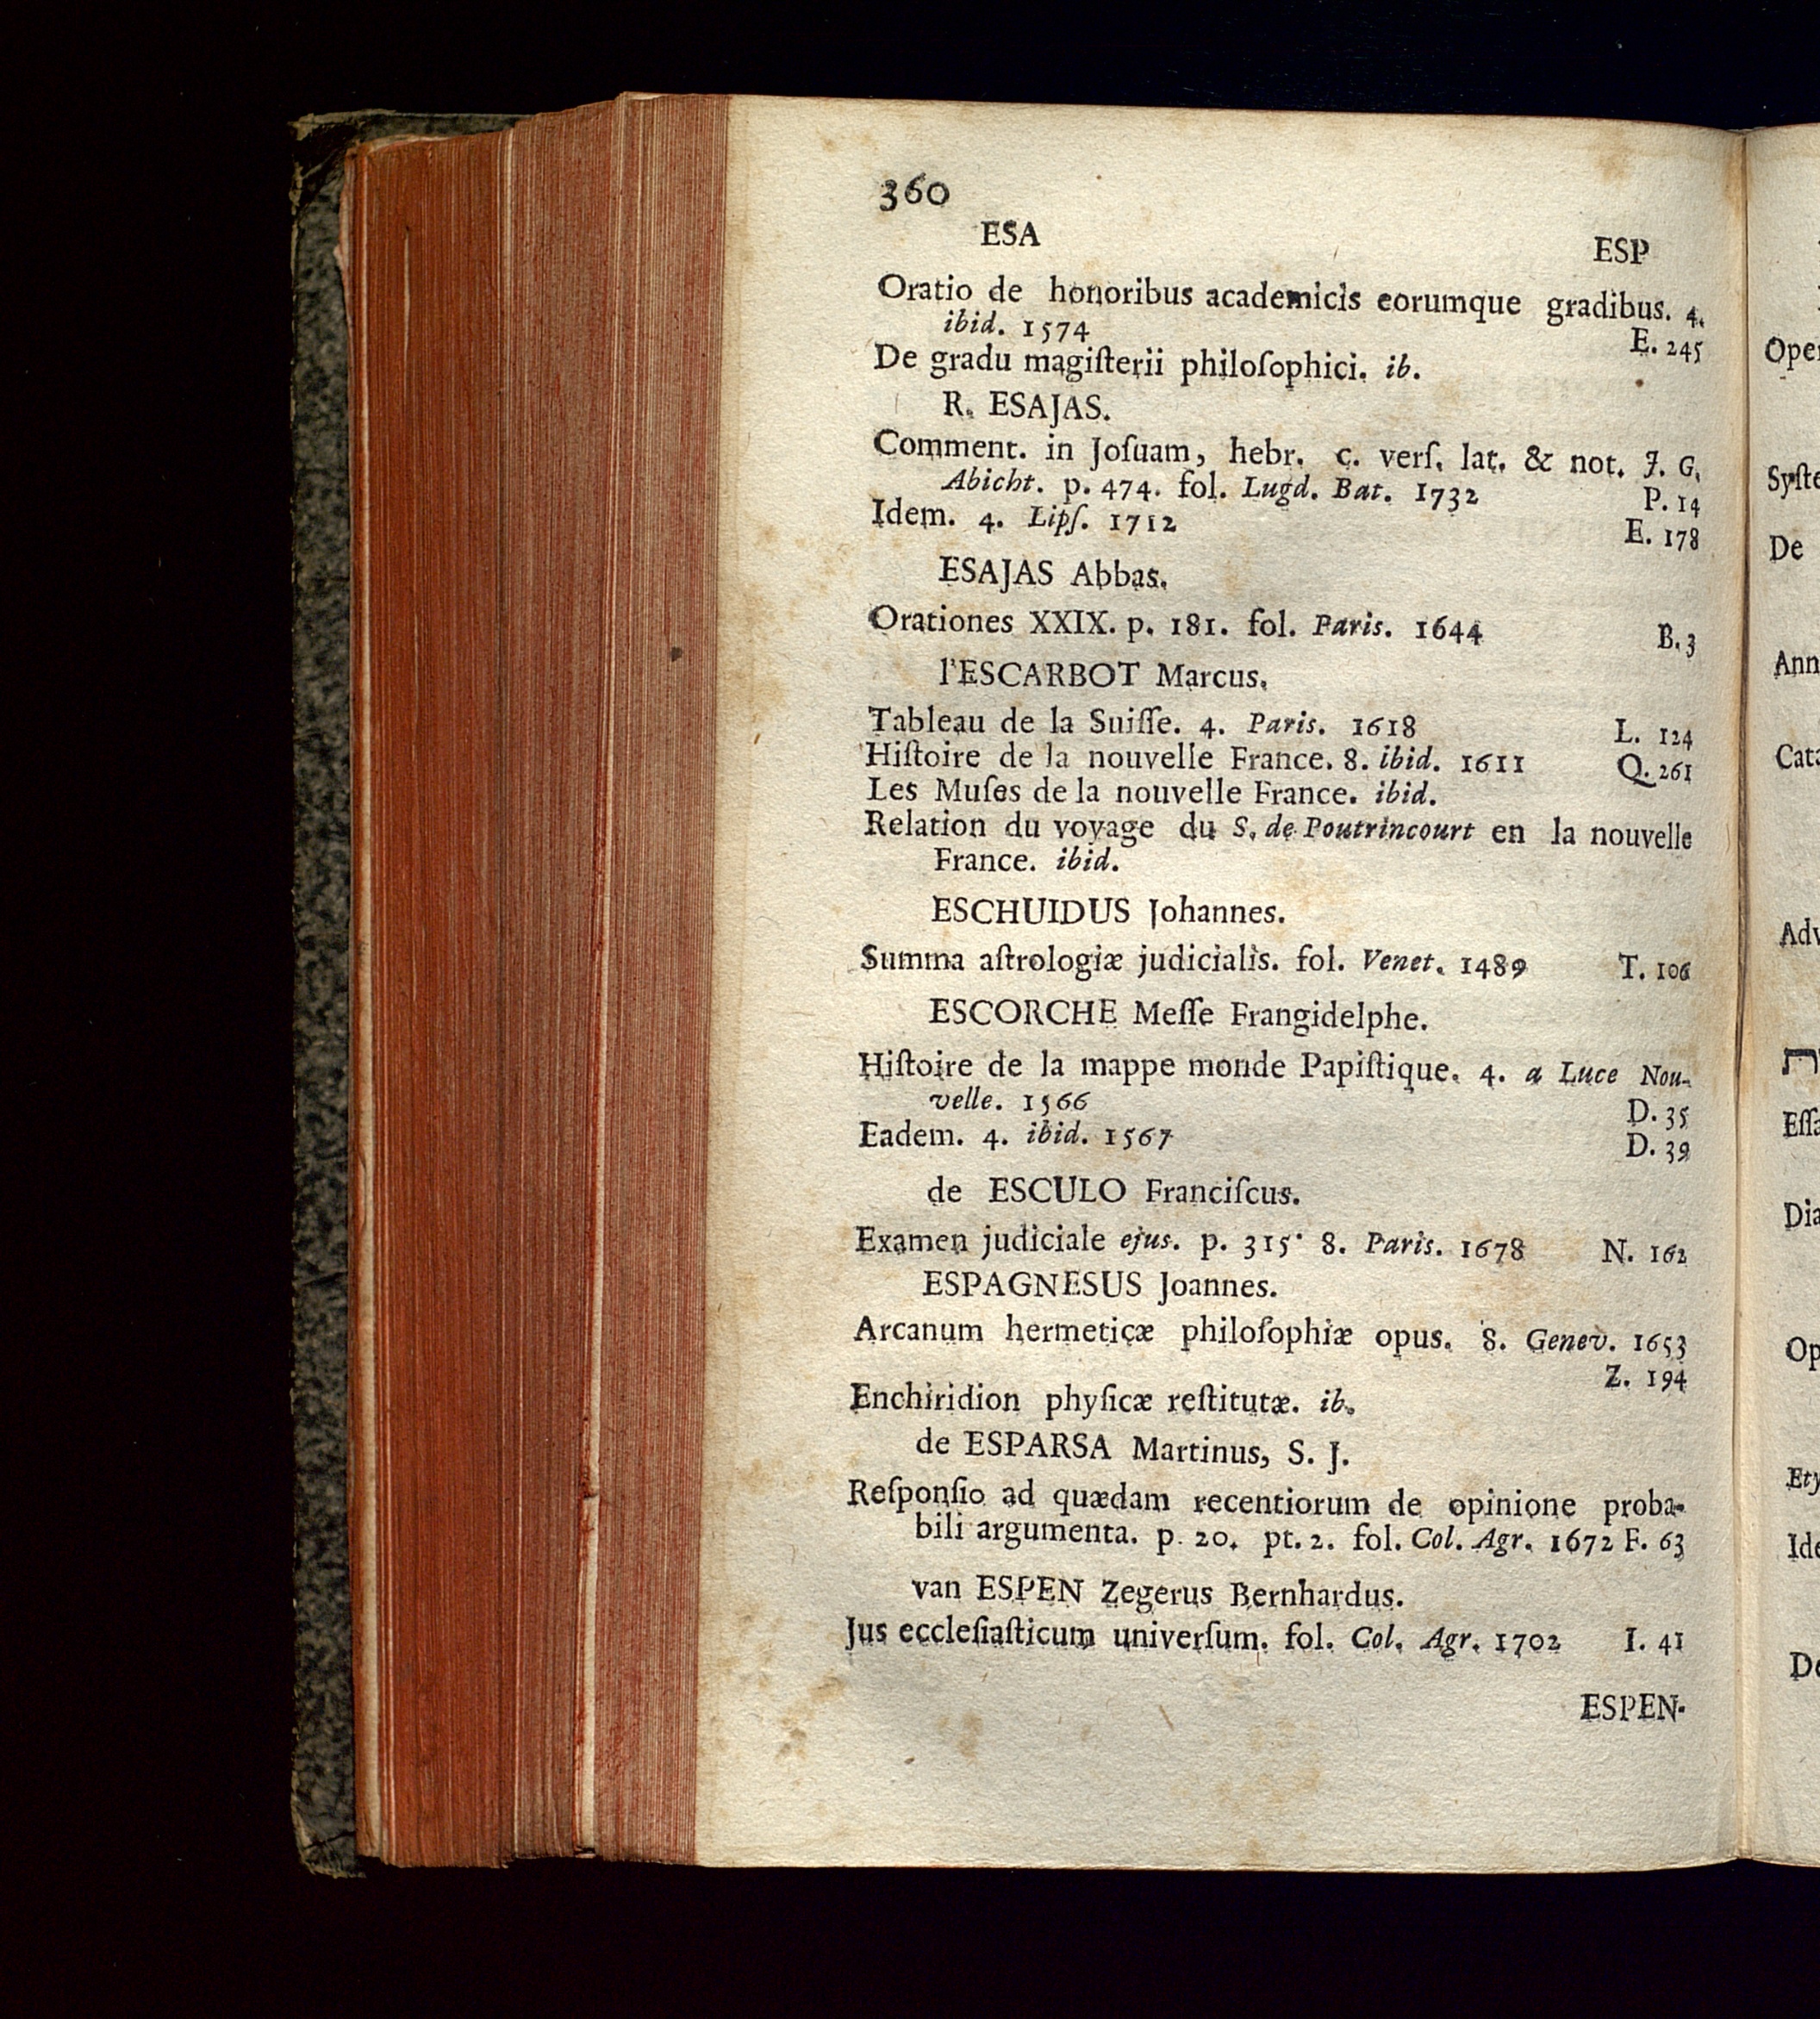 360
ESA ESP
Oratio de honoribus academicis eorumque gradibus. 4.
ibid. 1574 E. 245
De gradu magiſterii philoſophici. ib.
R. ESAJAS.
Comment. in Joſuam, hebr. c. verſ. lat. & not. J. G.
Abicht. p. 474. fol. Lugd. Bat. 1732 P. 14
Idem. 4. Lipſ. 1712 E. 178
ESAJAS Abbas.
Orationes XXIX. p. 181. fol. Paris. 1644 B. 3
l'ESCARBOT Marcus.
Tableau de la Suiſſe. 4. Paris. 1618 L. 124
Hiſtoire de la nouvelle France. 8. ibid. 1611 Q. 261
Les Muſes de la nouvelle France. ibid.
Relation du voyage du S. de Poutrincourt en la nouvelle
France. ibid.
ESCHUIDUS Johannes.
Summa aſtrologiæ judicialis. fol. Venet. 1489 T. 106
ESCORCHE Meſſe Frangidelphe.
Hiſtoire de la mappe monde Papiſtique. 4. a Luce Nou-
velle. 1566 D. 35
Eadem. 4. ibid. 1567 D. 39
de ESCULO Franciſcus.
Examen judiciale ejus. p. 315. 8. Paris. 1678 N. 162
ESPAGNESUS Joannes.
Arcanum hermeticæ philoſophiæ opus. 8. Genev. 1653
Z. 194
Enchiridion phyſicæ reſtitutæ. ib.
de ESPARSA Martinus, S. J.
Reſponſio ad quædam recentiorum de opinione proba-
bili argumenta. p. 20. pt. 2. fol. Col. Agr. 1672 F. 63
van ESPEN Zegerus Bernhardus.
Jus eccleſiaſticum univerſum. fol. Col. Agr. 1702 I. 41
ESPEN-
De